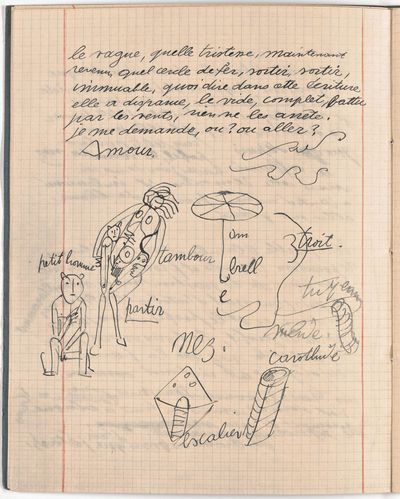 le vague, quelle tristesse, maintenant
revenu, quel cercle de fer, sortir, sortir,
immuable, quoi dire dans cette écriture
elle a disparue, le vide, complet, battu
par les vents, rien ne les arrête.
je me demande, où? ou aller?
Amour
petit homme
tambour
om
brell
e
troit.
partir
nez.
escalier